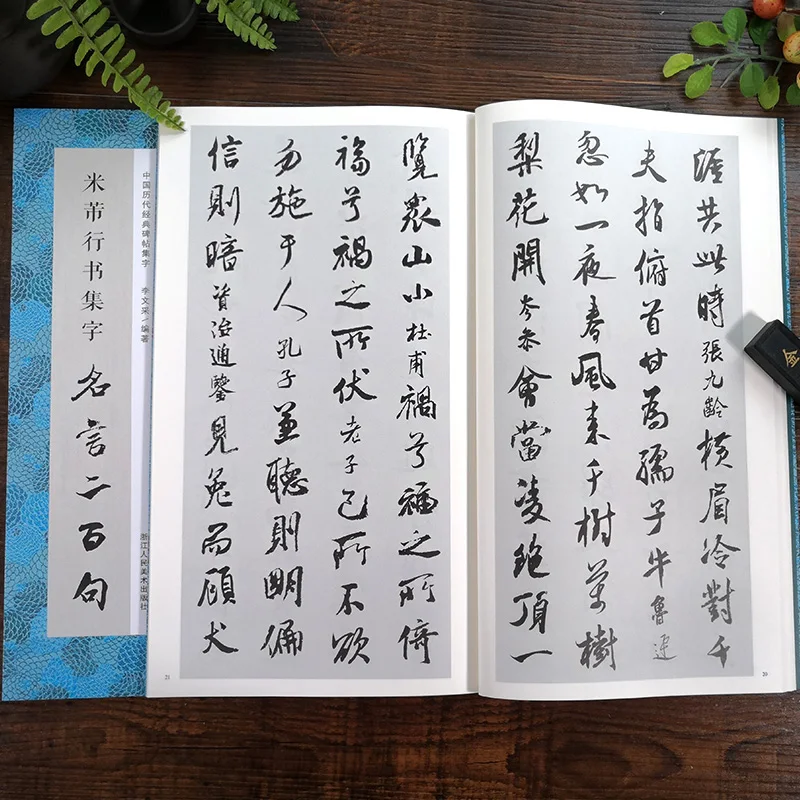 涯共此時張九齡橫眉冷對千
夫指俯首甘為孺子牛魯迅
忽如一夜春風來千樹萬樹
梨花開岑參會當凌絕頂一
20
覽衆山小杜甫禍兮福之所倚
福兮禍之所伏老子己所不欲
勿施于人孔子兼聽則明偏
信則暗資治通鑒見兔而顧犬
21
中国历代经典碑帖集字 李文采/编著
浙江人民美术出版社
米芾行书集字 名言二百句
金